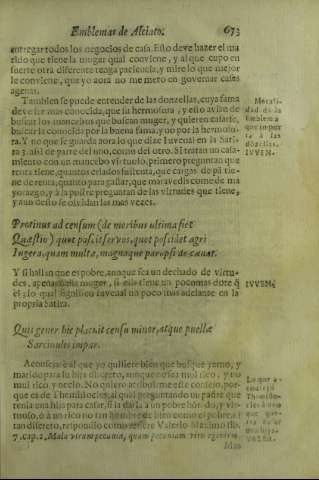 Emblemas de Alciato. 673
entregar todos los negocios de casa. Esto deve hazer el ma
rido que tiene la muger qual conviene, y al que cupo en
suerte otra diferente tenga paciencia, y mire lo que mejor
le conviene, que yo aora no me meto en governar casas
agenas.
Tambien se puede entender de las donzellas, cuya fama
deve ser mas conocida, que su hermosura, y esto avisa de
buscar los mancebos que buscan muger, y quieren casarse,
buscar la conocida por la buena fama, y no por la hermosu-
ra. Y no que se guarda aora lo que dize Iuvenal en la Sati-
ra 3. assi de parte del uno, como del otro. Si tratan un casa-
miento con un mancebo virtuoso, primero preguntan que
renta tiene, quantos criados sustenta, que cargas de
ne de renta, quanto para gastar, que maravedis come de ma
yorazgo, y a la postre preguntan de las virtudes que tiene,
y aun desto se olvidan las mas vezes.
Morali-
dad de la
Emblema
que impor
ta à las
dōzellas.
IUVEN.
Protinus ad censum (de moribus ultima fiet
Quæstio) quot pascit servos, quot possidet agri
Iugera, quam multa, magnaque paropside cœnat.
Y si hallan que es pobre, aunque sea un dechado de virtu-
des, apenas halla muger, si ella tiene un poco mas dote q̄
el; lo qual significò Iuvenal un poco mas adelante en la
propria satira.
IUVEN.
Quis gener hic placuit censu minor, atque puellæ
Sarcinulis impar.
Aconsejaria al que yo quisiere bien que busque yerno, y
marido para su hija discreto, aunque no sea mui rico, y no
mui rico y necio. No quiero atribuirme este consejo, por-
que es de Themistocles, al qual preguntando un padre que
tenia una hija para casar, si la daria à un pobre hōrado, y vir-
tuoso, ò à un rico no tan hombre de bien como el pobre, ni
tan discreto, respondiò como refiere Valerio Maximo lib.
7. cap. 2. Malo virum pecunia, quam pecuniam viro egentem.
Lo que a-
consejò
Themisto-
cles à uno
que que-
ria casar
una hija.
VALER.
Mas